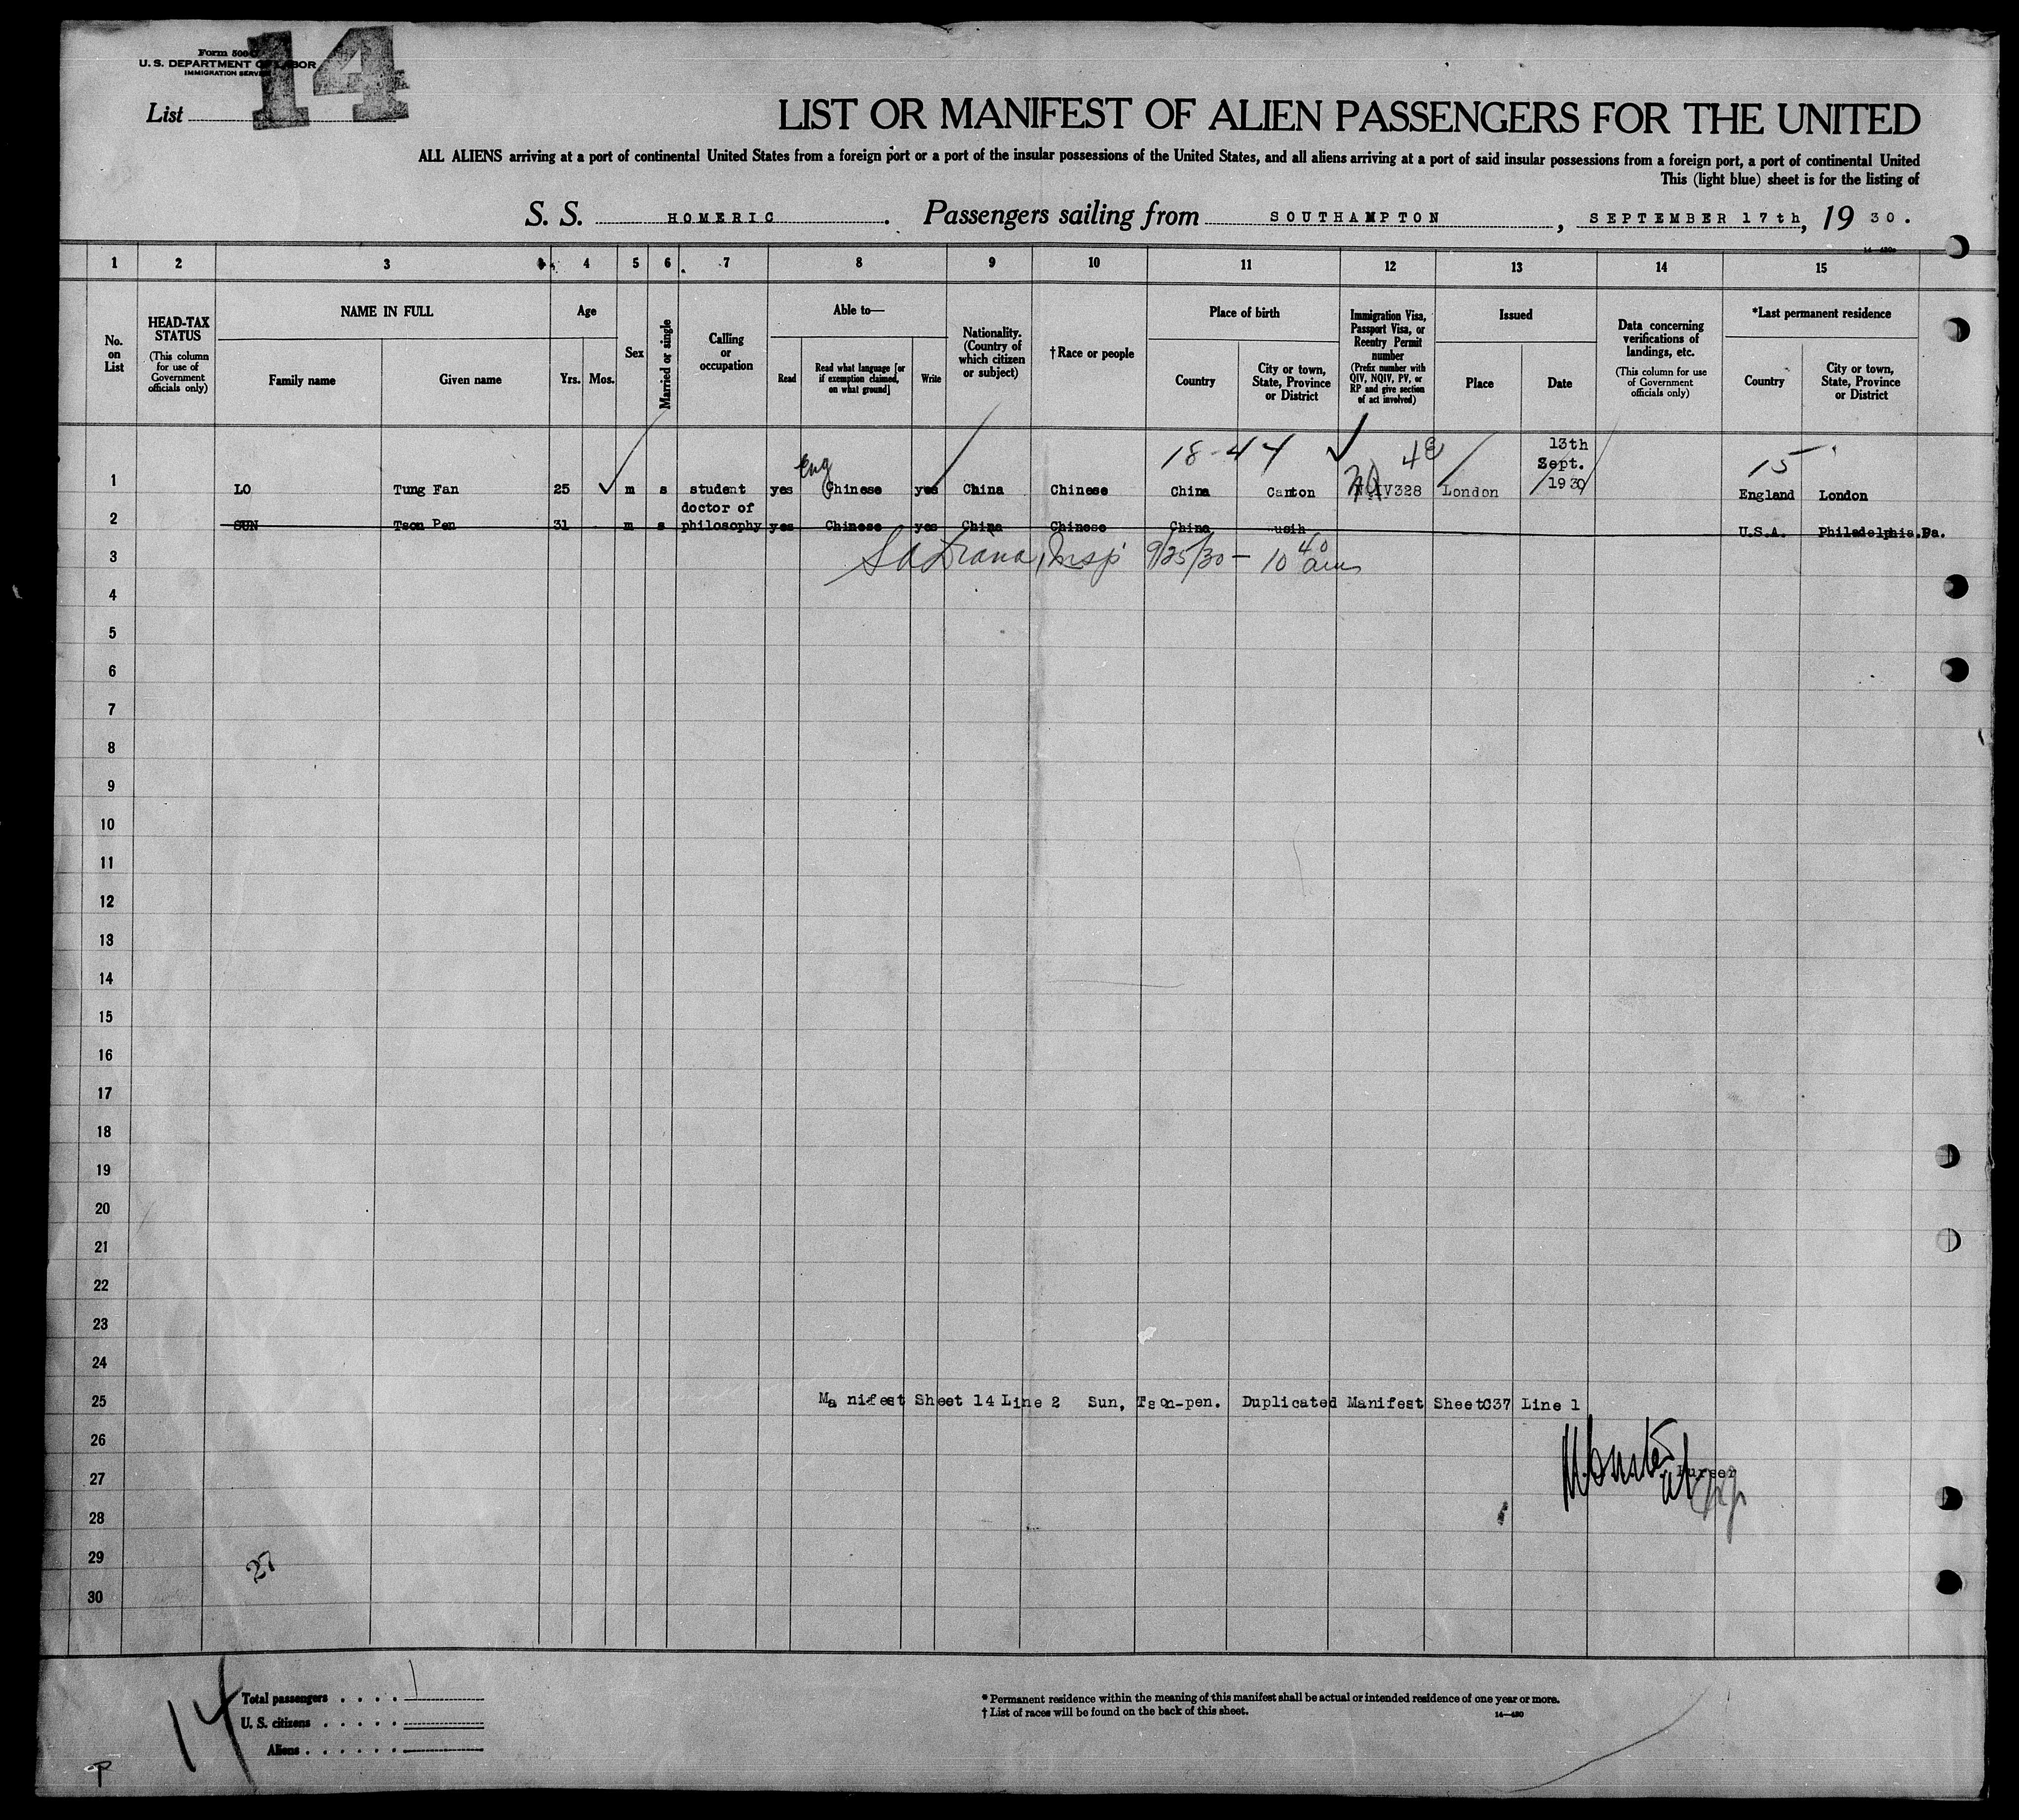 Form 500
U. S. DEPARTMENT OF LABOR
IMMIGRATION SERVICE
14
List
LIST OR MANIFEST OF ALIEN PASSENGERS FOR THE UNITED
ALL ALIENS arriving at a port of continental United States from a foreign port or a port of the insular possessions of the United States, and all aliens arriving at a port of said insular possessions from a foreign port, a port of continental United
This (light blue) sheet is for the listing of
S. S. HOMERIC. Passengers sailing from SOUTHAMPTON, SEPTEMBER 17th, 19 30.
1 2 3 4 5 6 7 8 9 10 11 12 13 14 15
No. on List
HEAD-TAX STATUS (This column for use of Government officials only)
NAME IN FULL
Family name Given name
Age
Yrs. Mos.
Sex
Married or single
Calling or occupation
Able to—
Read
Read what language [or if exemption claimed, on what ground]
Write
Nationality. (Country of which citizen or subject)
†Race or people
Place of birth
Country
City or town, State, Province or District
Immigration Visa, Passport Visa, or Reentry Permit number (Prefix number with QIV, NQIV, PV, or RP and give section of act involved)
Issued
Place Date
Data concerning verifications of landings, etc. (This column for use of Government officials only)
*Last permanent residence
Country
City or town, State, Province or District
18-44 4e 13th Sept. 15
1 LO Tung Fan 25 m s student yes eng Chinese yes China Chinese China Canton V328 London 1930 England London
2 SUN Tson Pen 31 m s doctor of philosophy yes Chinese yes China Chinese China usih U.S.A. Philadelphia.Pa.
3 Insp 9/25/30 - 10 40 am
4
5
6
7
8
9
10
11
12
13
14
15
16
17
18
19
20
21
22
23
24
25 Manifest Sheet 14 Line 2 Sun, Tson-pen. Duplicated Manifest SheetC37 Line 1
26
27 Purser
28
29 27
30
14
Total passengers . . . . 1
U. S. citizens . . . . .
Aliens . . . . . .
* Permanent residence within the meaning of this manifest shall be actual or intended residence of one year or more.
† List of races will be found on the back of this sheet.
14—430
P